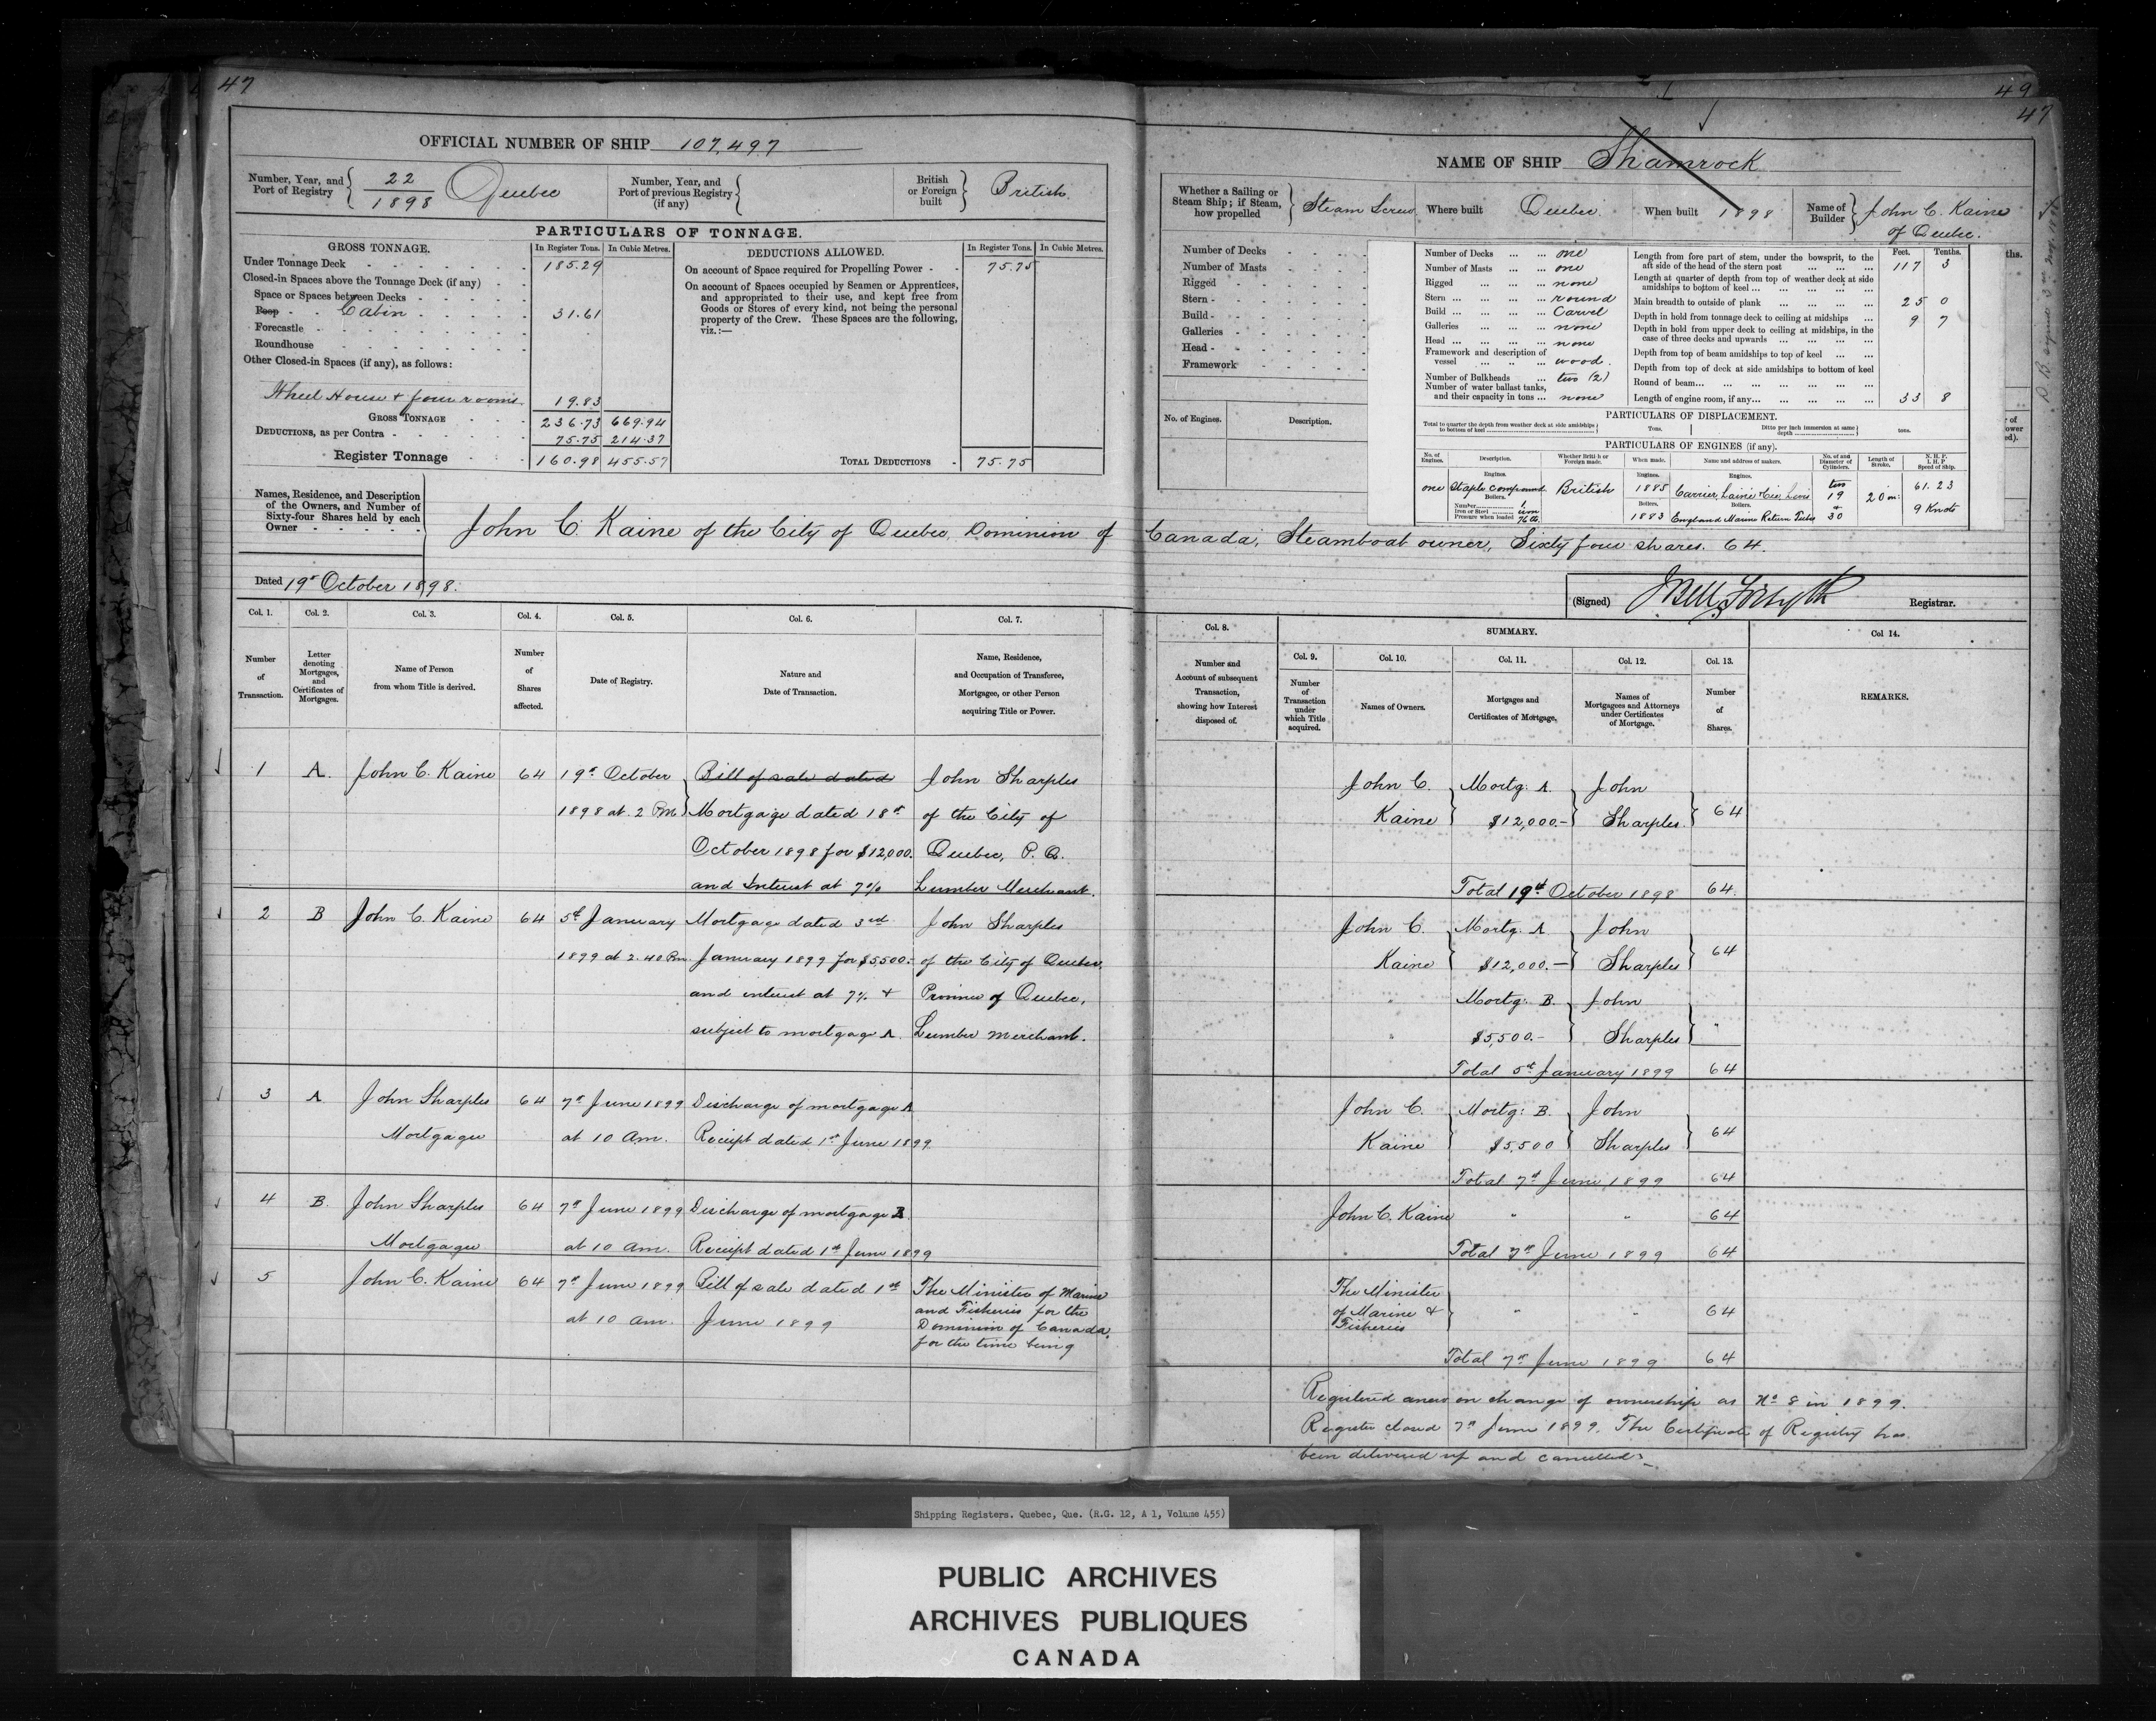 47
49
47
OFFICIAL NUMBER OF SHIP 107,497
Number, Year, and Port of Registry 22/1898 Quebec
Number, Year, and Port of previous Registry (if any)
British or Foreign built British
PARTICULARS OF TONNAGE.
GROSS TONNAGE. In Register Tons. In Cubic Metres.
Under Tonnage Deck 185.29
Closed-in Spaces above the Tonnage Deck (if any)
Space or Spaces between Decks
Poop Cabin 31.61
Forecastle
Roundhouse
Other Closed-in Spaces (if any), as follows:
Wheel House & four rooms 19.83
GROSS TONNAGE 236.73 669.94
DEDUCTIONS, as per Contra 75.75 214.37
Register Tonnage 160.98 455.57
DEDUCTIONS ALLOWED. In Register Tons. In Cubic Metres.
On account of Space required for Propelling Power 75.75
On account of Spaces occupied by Seamen or Apprentices,
and appropriated to their use, and kept free from
Goods or Stores of every kind, not being the personal
property of the Crew. These Spaces are the following,
viz.:—
TOTAL DEDUCTIONS 75.75
NAME OF SHIP Shamrock
Whether a Sailing or Steam Ship; if Steam, how propelled Steam Screw
Where built Quebec
When built 1898
Name of Builder John C. Kaine of Quebec.
Number of Decks
Number of Masts
Rigged
Stern
Build
Galleries
Head
Framework
No. of Engines. Description.
Number of Decks one
Number of Masts one
Rigged none
Stern round
Build Carvel
Galleries none
Head none
Framework and description of vessel wood.
Number of Bulkheads two (2)
Number of water ballast tanks, and their capacity in tons none
Feet. Tenths.
Length from fore part of stem, under the bowsprit, to the aft side of the head of the stern post 117 3
Length at quarter of depth from top of weather deck at side amidships to bottom of keel
Main breadth to outside of plank 25 0
Depth in hold from tonnage deck to ceiling at midships 9 7
Depth in hold from upper deck to ceiling at midships, in the case of three decks and upwards
Depth from top of beam amidships to top of keel
Depth from top of deck at side amidships to bottom of keel
Round of beam
Length of engine room, if any 33 8
PARTICULARS OF DISPLACEMENT.
Total to quarter the depth from weather deck at side amidships to bottom of keel Tons.
Ditto per inch immersion at same depth tons.
PARTICULARS OF ENGINES (if any).
No. of Engines. Description. Whether British or Foreign made. When made. Name and address of makers. No. of and Diameter of Cylinders. Length of Stroke. N. H. P. I. H. P. Speed of Ship.
Engines. Engines. Engines.
one Staple compound British 1885 Carrier, Lainé & Cie, Levis two 19 & 30 20 in: 61.23
Boilers. Boilers. Boilers.
Number 1
Iron or Steel iron
Pressure when loaded 76 lb.
1883 England Marine Return Tubes 9 Knots
Names, Residence, and Description
of the Owners, and Number of
Sixty-four Shares held by each
Owner
John C. Kaine of the City of Quebec, Dominion of Canada, Steamboat owner, Sixty four shares. 64.
Dated 19th October 1898.
(Signed) J Bell Forsyth Registrar.
Col. 1. Col. 2. Col. 3. Col. 4. Col. 5. Col. 6. Col. 7. Col. 8. SUMMARY. Col 14.
Col. 9. Col. 10. Col. 11. Col. 12. Col. 13.
Number of Transaction.
Letter denoting Mortgages, and Certificates of Mortgages.
Name of Person from whom Title is derived.
Number of Shares affected.
Date of Registry.
Nature and Date of Transaction.
Name, Residence, and Occupation of Transferee, Mortgagee, or other Person acquiring Title or Power.
Number and Account of subsequent Transaction, showing how Interest disposed of.
Number of Transaction under which Title acquired.
Names of Owners.
Mortgages and Certificates of Mortgage.
Names of Mortgagees and Attorneys under Certificates of Mortgage.
Number of Shares.
REMARKS.
1 A. John C. Kaine 64 19th October Bill of sale dated John Sharples
1898 at 2 Pm Mortgage dated 18th of the City of
October 1898 for $12,000. Quebec, P. Q.
and Interest at 7% Lumber Merchant.
John C. Mortg: A. John
Kaine $12,000.- Sharples 64
Total 19th October 1898 64.
2 B John C. Kaine 64 5th January Mortgage dated 3rd John Sharples
1899 at 2.40 Pm. January 1899 for $5,500.- of the City of Quebec,
and interest at 7% & Province of Quebec,
subject to mortgage A. Lumber Merchant.
John C. Mortg: A John
Kaine $12,000.— Sharples 64
Mortg: B. John
$5,500.- Sharples "
Total 5th January 1899 64
3 A John Sharples 64 7th June 1899 Discharge of mortgage A
Mortgagee at 10 am. Receipt dated 1st June 1899
John C. Mortg: B. John
Kaine $5,500 Sharples 64
Total 7th June 1899 64
4 B. John Sharples 64 7th June 1899 Discharge of mortgage B
Mortgagee at 10 am. Receipt dated 1st June 1899
John C. Kaine " " 64
Total 7th June 1899 64
5 John C. Kaine 64 7th June 1899 Bill of sale dated 1st The Minister of Marine
at 10 am. June 1899 and Fisheries for the
Dominion of Canada,
for the time being
The Minister
of Marine & " " 64
Fisheries
Total 7th June 1899 64
Registered anew on change of ownership as No 8 in 1899.
Register closed 7th June 1899. The Certificate of Registry has
been delivered up and cancelled.
Shipping Registers. Quebec, Que. (R.G. 12, A 1, Volume 455)
PUBLIC ARCHIVES
ARCHIVES PUBLIQUES
CANADA